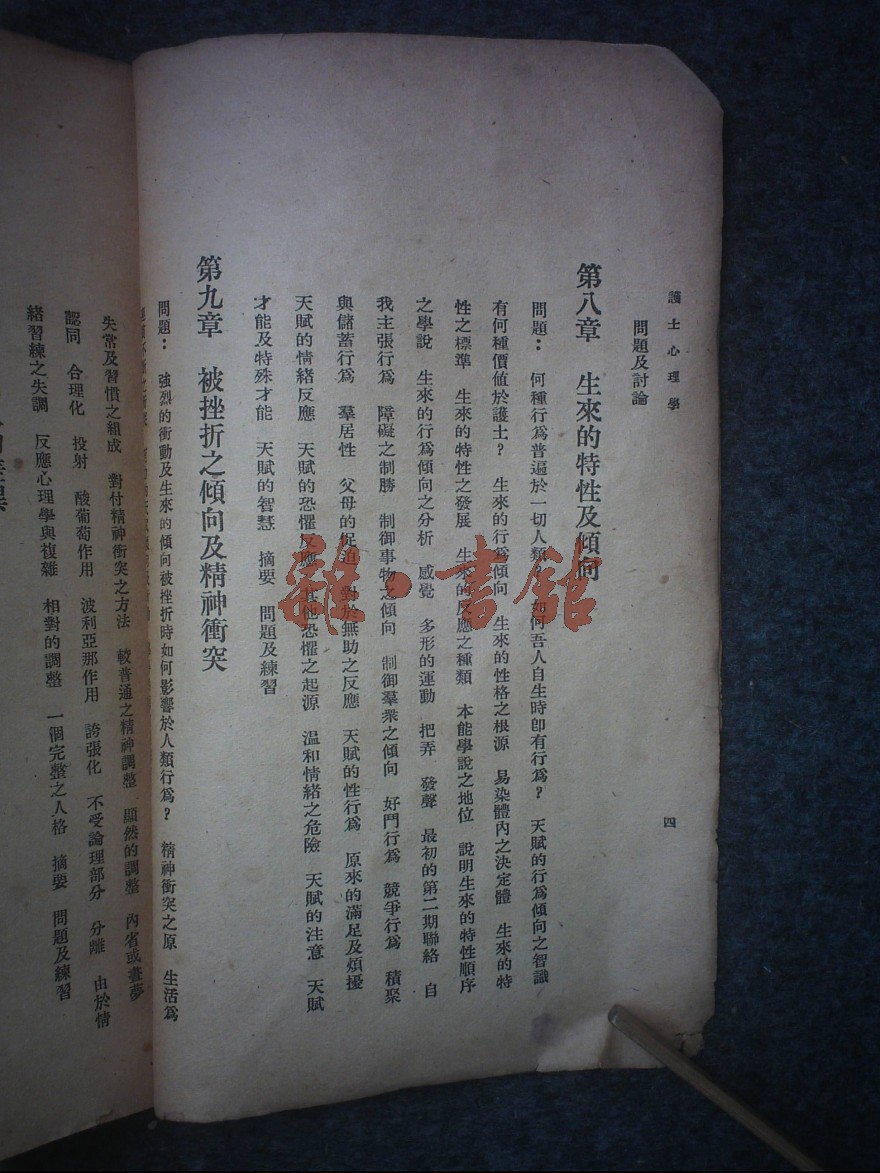 護士心理學
四
問題及討論
第八章 生來的特性及傾向
問題： 何種行爲普遍於一切人類？ 如何吾人自生時卽有行爲？ 天賦的行爲傾向之智識
有何種價値於護士？ 生來的行爲傾向 生來的性格之根源 易染體內之決定體 生來的特
性之標準 生來的特性之發展 生來的反應之種類 本能學說之地位 說明生來的特性順序
之學說 生來的行爲傾向之分析 感覺 多形的運動 把弄 發聲 最初的第二期聯絡 自
我主張行爲 障礙之制勝 制御事物之傾向 制御羣衆之傾向 好鬥行爲 競爭行爲 積聚
與儲蓄行爲 羣居性 父母的促迫 對於無助之反應 天賦的性行爲 原來的滿足及煩擾
天賦的情緒反應 天賦的恐懼反應 其他恐懼之起源 温和情緒之危險 天賦的注意 天賦
才能及特殊才能 天賦的智慧 摘要 問題及練習
第九章 被挫折之傾向及精神衝突
問題： 強烈的衝動及生來的傾向被挫折時如何影響於人類行爲？ 精神衝突之原 生活爲
失常及習慣之組成 對付精神衝突之方法 較普通之精神調整 顯然的調整 內省或晝夢
認同 合理化 投射 酸葡萄作用 波利亞那作用 誇張化 不受論理部分 分離 由於情
緒習練之失調 反應心理學與複雜 相對的調整 一個完整之人格 摘要 問題及練習
雜·書館